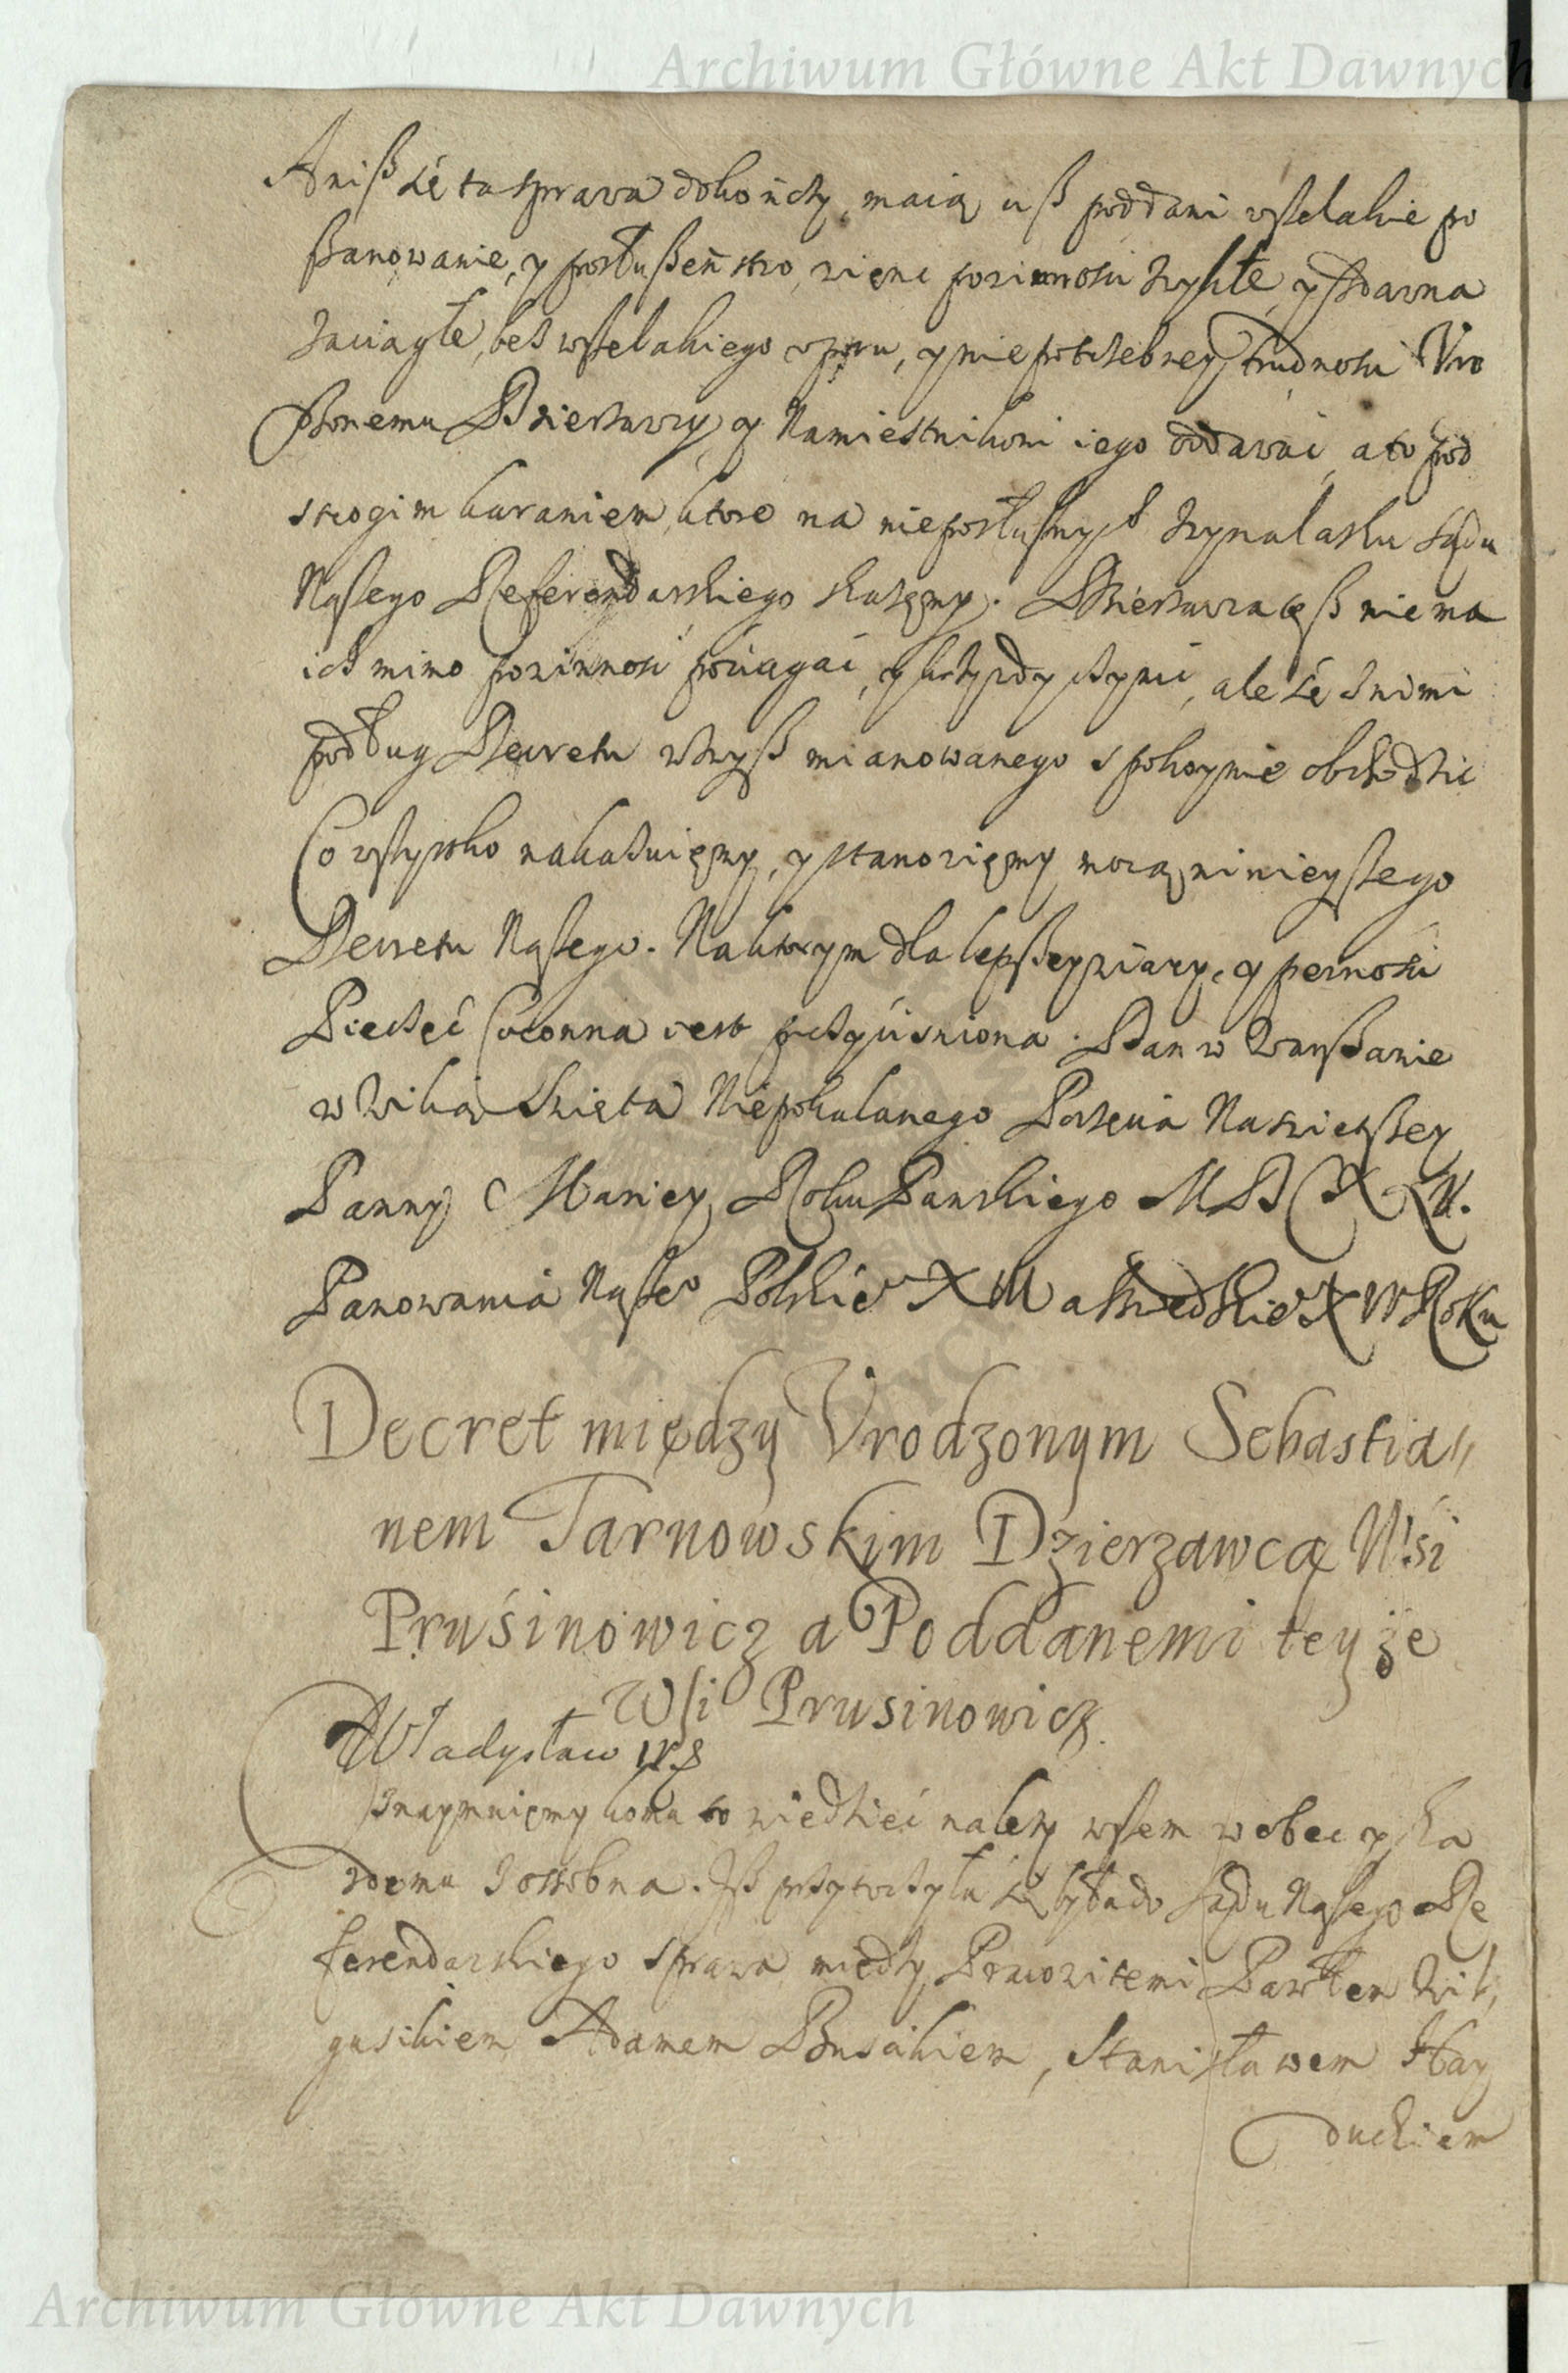 Archiwum Główne Akt Dawnych
Aniß się ta sprawa dokończy, maią uß poddani wszelakie po
ßanowanie, y posłußeństwo, więc powinności zwykłe, y zdawna
zaciągłe, bez wszelakiego uporu, y niepotrzebney trudności Vro
dzonemu Dzierzawcy, y Namiestnikowi iego oddawać, a to pod
srogim karaniem, ktore na nieposłusznych z wynalasku sądu
Naszego Referendarskiego skażemy. Dzierzawca teß nie ma
ich mimo powinność pociągać, y krzywdy czynić, ale się z nimi
podług Decretu zwyß mianowanego spokoynie obchodzić
Co wszystko nakazuięmy, y stanowięmy mocą ninieyszego
Decretu Naszego. Na ktorym dla lepßey wiary, y pewności
Pieczęć Coronna iest przyciśniona. Dan w Warßawie
w Wilią Swięta Niepokalanego Poczęcia Naswiętszey
Panny Mariey, Roku Panskiego MDCXLV.
Panowania Naszeo Polskieo XIII a Szwedzkieo XIV Roku
Decret między Vrodzonym Sebastia〃
nem Tarnowskim Dzierzawcą Wśi
Pruśinowicz a Poddanemi teyże
Wsi Prusinowicz.
Władysław IV.
Oznaymuięmy komu to wiedzieć nalezy wszem wobec y ka
zdemu z osobna. Iß przytoczyła się była do Sądu Naszego Re
ferendarskiego sprawa między Pracowitemi Pawłem Wit,
gusikiem Adamem Busikiem, Stanisławem Hay
duckiem
Archiwum Główne Akt Dawnych